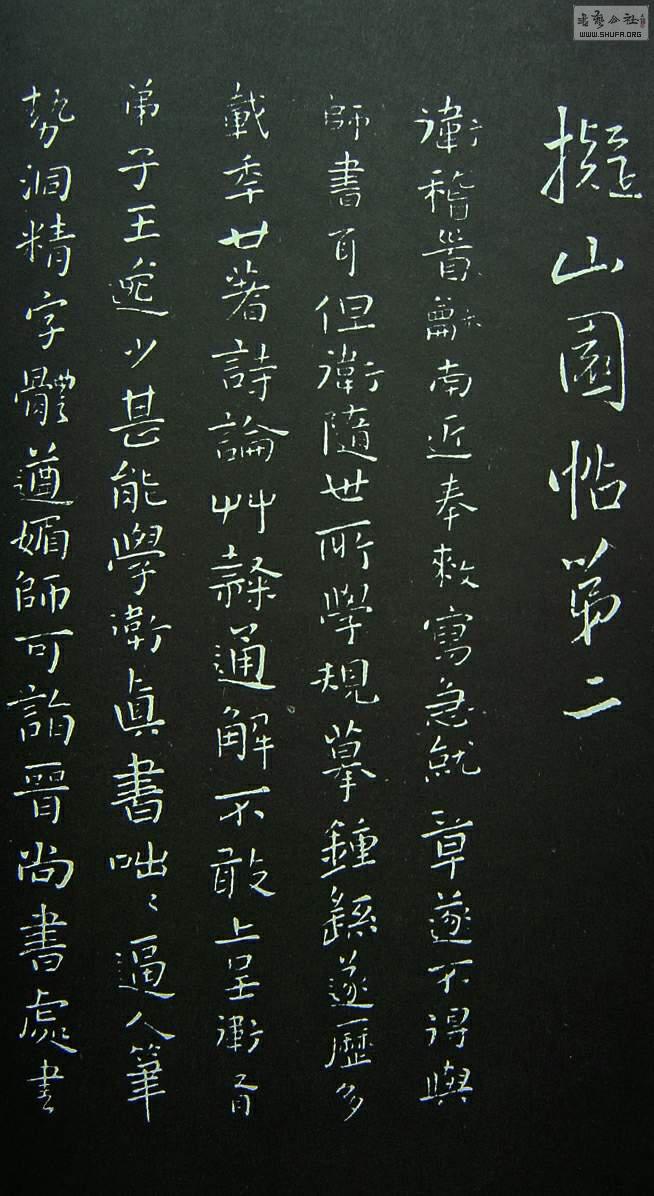 擬山園帖第二
衛稽首龢南近奉敕寫急就章遂不得與
師書耳但衛隨世所學規摹鍾繇遂歷多
載秊廿著詩論艸隸通解不敢上呈衛有
弟子王逸少甚能學衛眞書咄〻逼人筆
勢洞精字體遒媚師可詣晉尚書處書
書藝公社
WWW.SHUFA.ORG